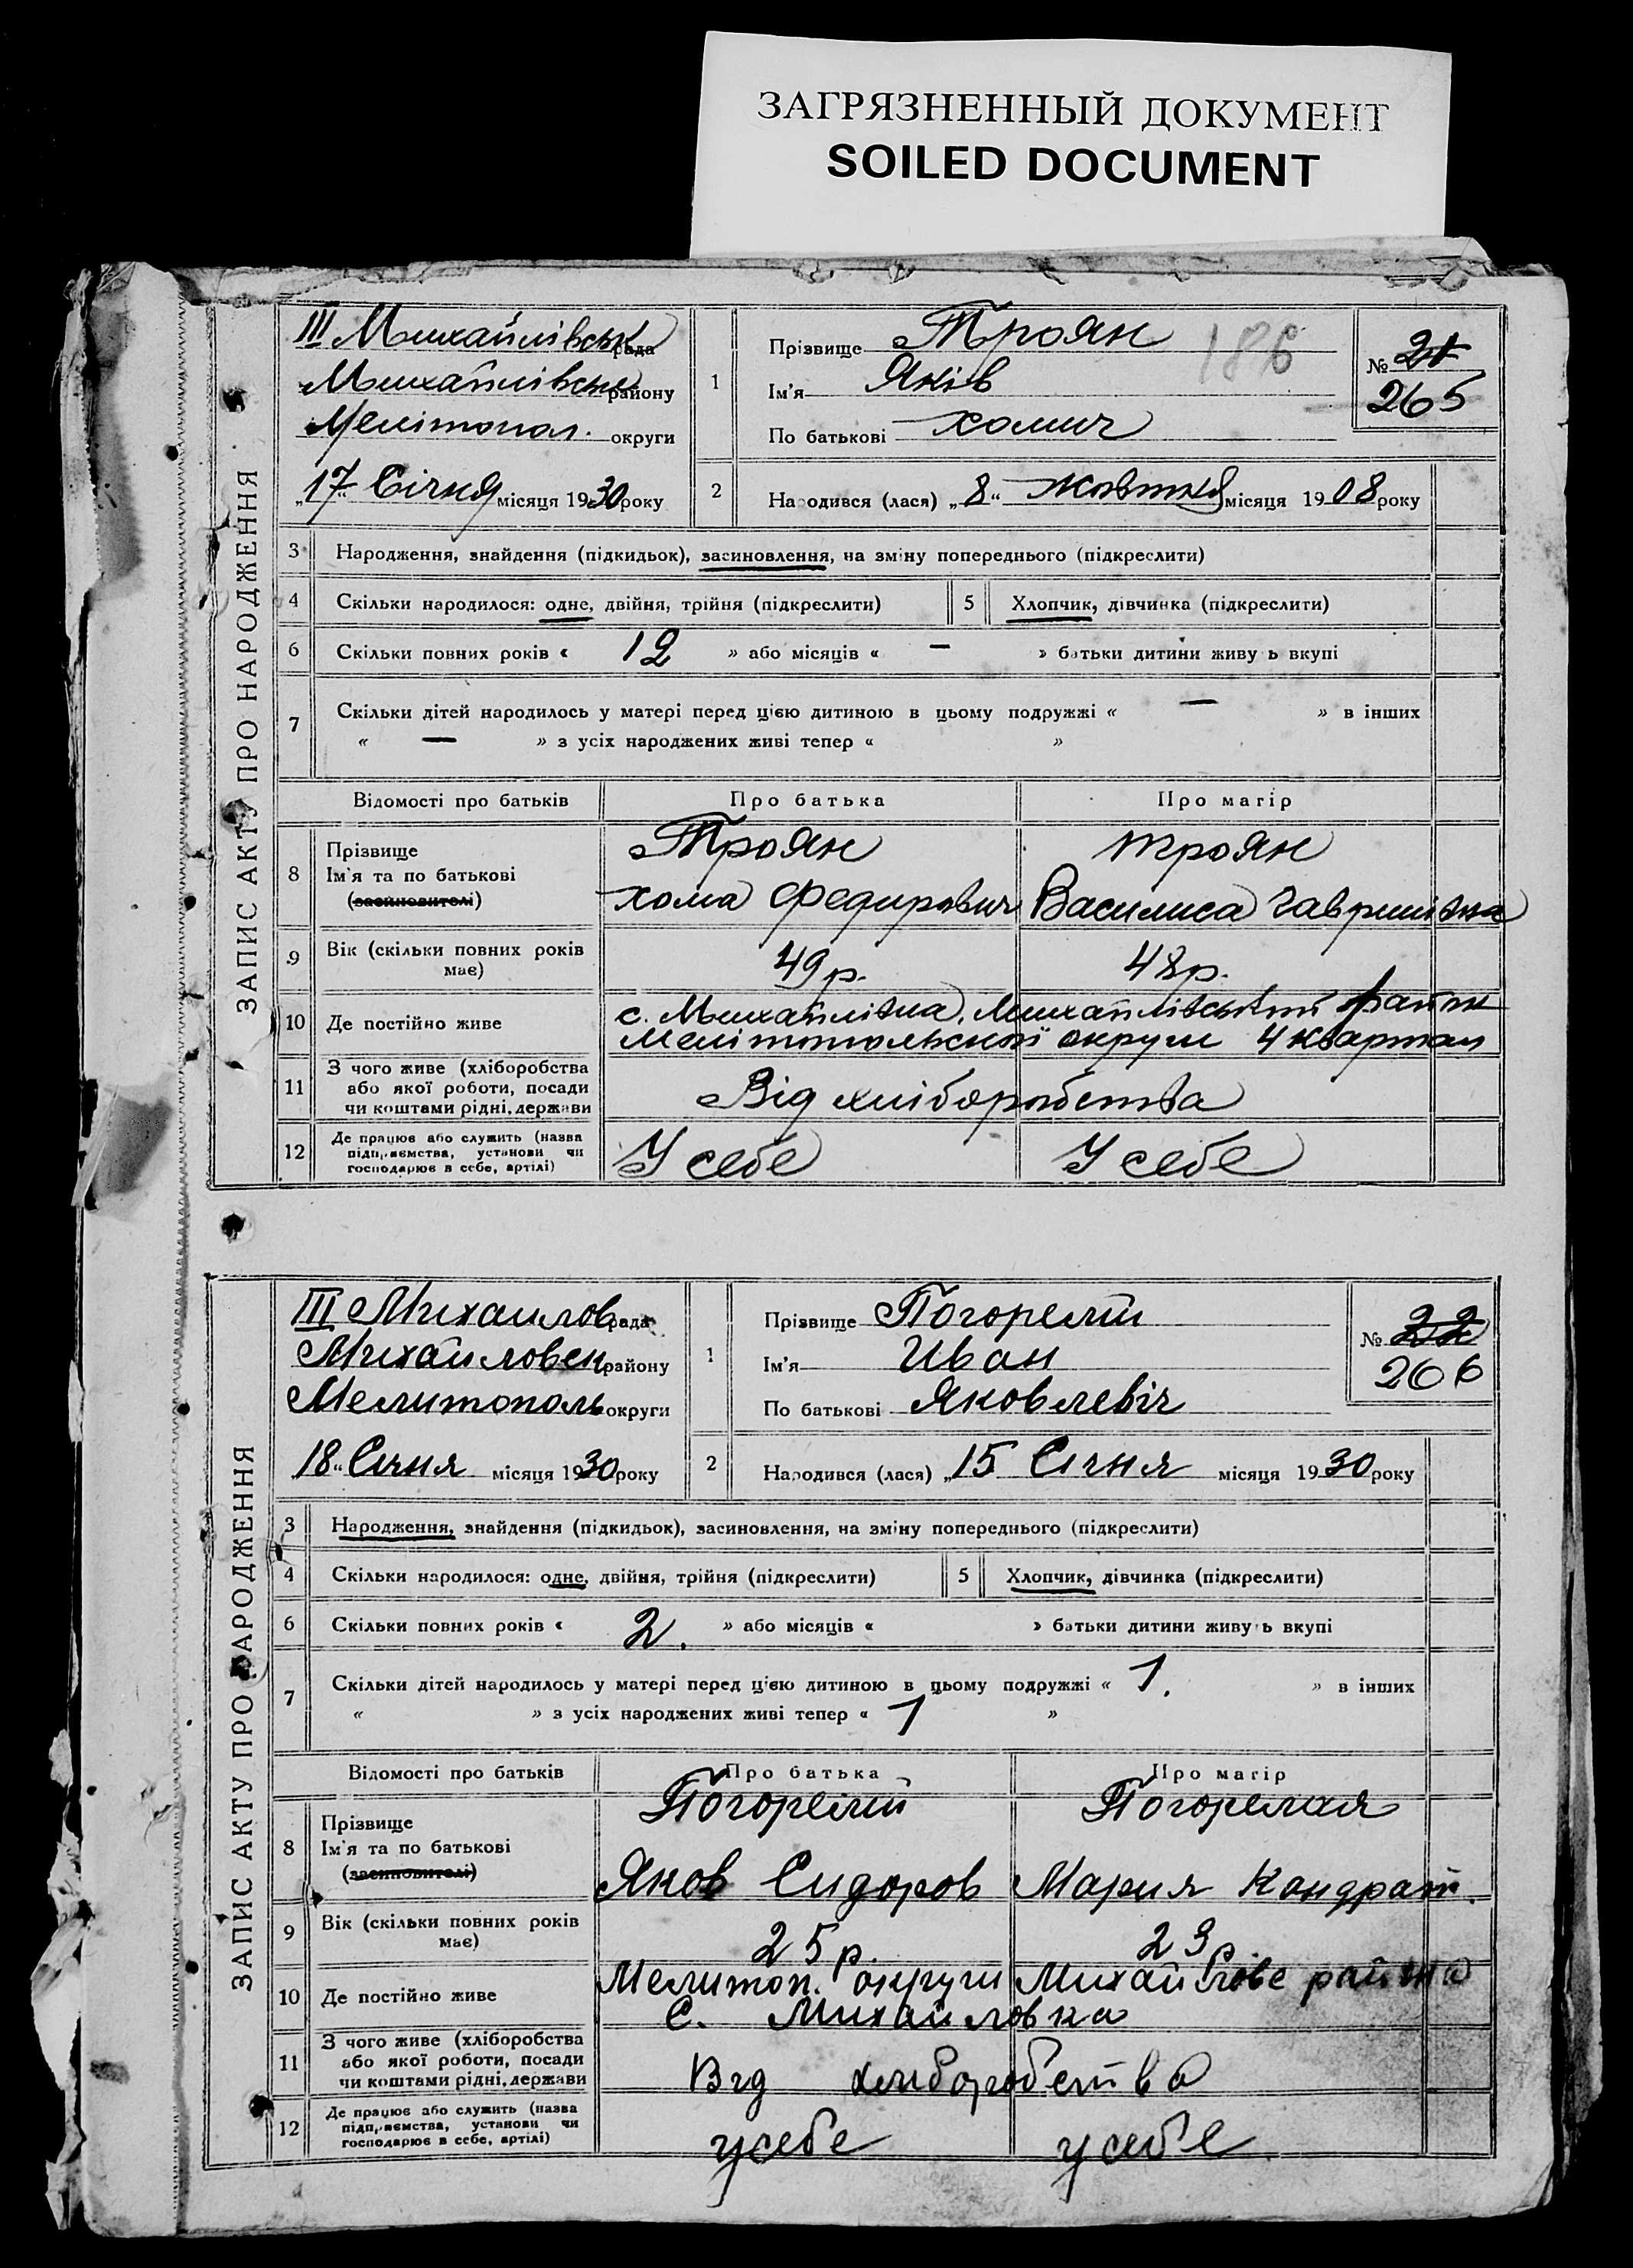 ЗАГРЯЗНЕННЫЙ ДОКУМЕНТ
SOILED DOCUMENT
ЗАПИС АКТУ ПРО НАРОДЖЕННЯ
III Михайлівськ рада
Михайлівськ району
Мелітопол. округи
„17“ Січня місяця 1930 року
1
Прізвище Троян
186
Ім'я Яків
По батькові Хомич
№ 21
265
2 Народився (лася) „8“ жовтня місяця 1908 року
3 Народження, знайдення (підкидьок), засиновлення, на зміну попереднього (підкреслити)
4 Скільки народилося: одне, двійня, трійня (підкреслити) 5 Хлопчик, дівчинка (підкреслити)
6 Скільки повних років « 12 » або місяців « — » батьки дитини живуть вкупі
7 Скільки дітей народилось у матері перед цією дитиною в цьому подружжі « — » в інших
« — » з усіх народжених живі тепер « »
Відомості про батьків Про батька Про матір
8 Прізвище Троян Троян
Ім'я та по батькові Хома Федирович Василиса Гаврилівна
(засиновителі)
9 Вік (скільки повних років має) 49 р. 48 р.
10 Де постійно живе с. Михайлівка, Михайлівський район
Мелітопольської округи 4 квартал
11 З чого живе (хліборобства
або якої роботи, посади
чи коштами рідні, держави Від хліборобства
12 Де працює або служить (назва
підприємства, установи чи
господарює в себе, артілі) У себе У себе
ЗАПИС АКТУ ПРО НАРОДЖЕННЯ
III Михаилов рада
Михайловск району
Мелитополь округи
„18“ Січня місяця 1930 року
1
Прізвище Погорелий
Ім'я Иван
По батькові Яковлевіч
№ 22
266
2 Народився (лася) „15 Січня місяця 1930 року
3 Народження, знайдення (підкидьок), засиновлення, на зміну попереднього (підкреслити)
4 Скільки народилося: одне, двійня, трійня (підкреслити) 5 Хлопчик, дівчинка (підкреслити)
6 Скільки повних років « 2. » або місяців « » батьки дитини живуть вкупі
7 Скільки дітей народилось у матері перед цією дитиною в цьому подружжі « 1. » в інших
« » з усіх народжених живі тепер « 1 »
Відомості про батьків Про батька Про матір
8 Прізвище Погорелий Погорелая
Ім'я та по батькові
(засиновителі) Яков Сидоров Мария Кандрат.
9 Вік (скільки повних років має) 25 р. 23 р.
10 Де постійно живе Мелитоп. округи Михайлове района
С. Михайловка
11 З чого живе (хліборобства
або якої роботи, посади
чи коштами рідні, держави Від хлиборобства
12 Де працює або служить (назва
підприємства, установи чи
господарює в себе, артілі) у себе у себе